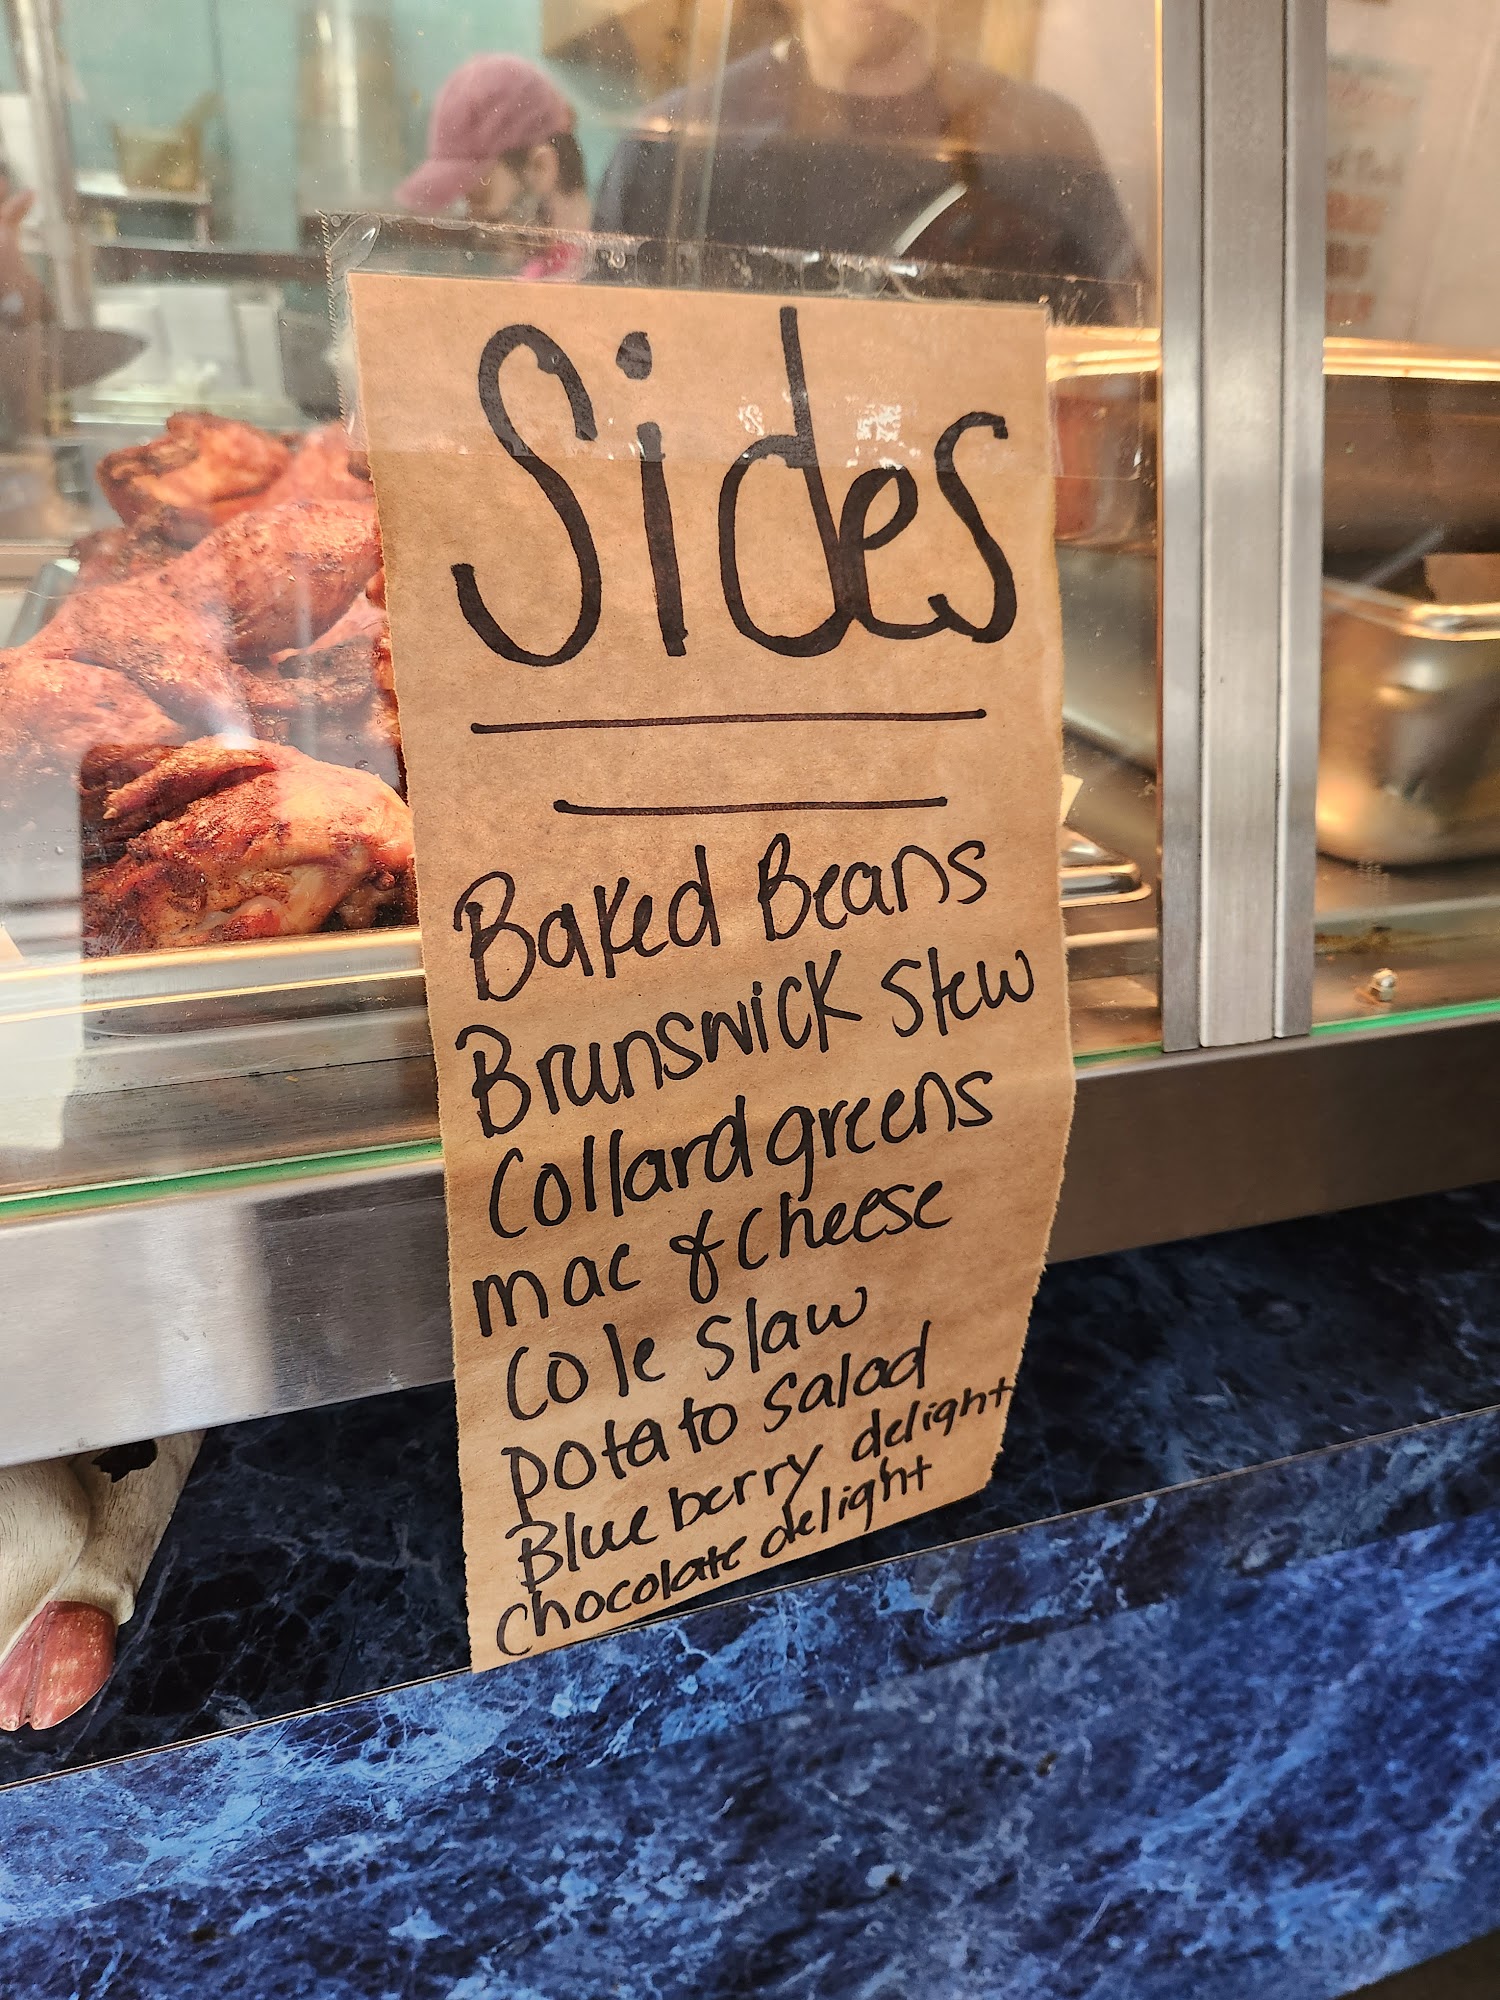 Sides
Baked Beans
Brunswick Stew
Collard greens
mac & cheese
Cole Slaw
potato Salad
Blueberry delight
Chocolate delight